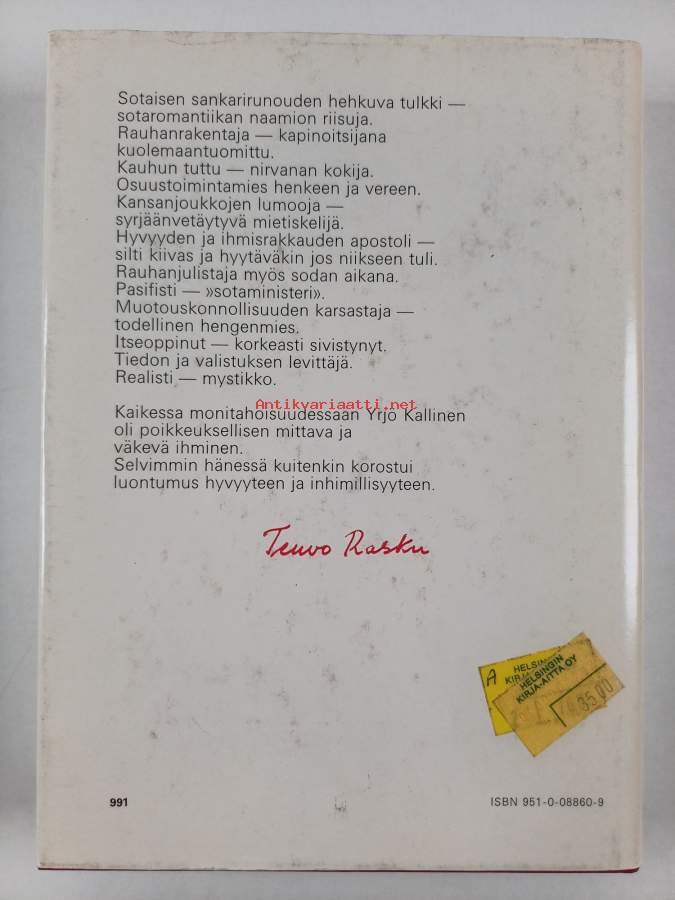 Sotaisen sankarirunouden hehkuva tulkki —
sotaromantiikan naamion riisuja.
Rauhanrakentaja — kapinoitsijana
kuolemaantuomittu.
Kauhun tuttu — nirvanan kokija.
Osuustoimintamies henkeen ja vereen.
Kansanjoukkojen lumooja —
syrjäänvetäytyvä mietiskelijä.
Hyvyyden ja ihmisrakkauden apostoli —
silti kiivas ja hyytäväkin jos niikseen tuli.
Rauhanjulistaja myös sodan aikana.
Pasifisti — »sotaministeri».
Muotouskonnollisuuden karsastaja —
todellinen hengenmies.
Itseoppinut — korkeasti sivistynyt.
Tiedon ja valistuksen levittäjä.
Realisti — mystikko.
Antikvariaatti.net
Kaikessa monitahoisuudessaan Yrjö Kallinen
oli poikkeuksellisen mittava ja
väkevä ihminen.
Selvimmin hänessä kuitenkin korostui
luontumus hyvyyteen ja inhimillisyyteen.
Teuvo Rasku
A
HELSINGIN
KIRJA-AITTA OY
35,00
991
ISBN 951-0-08860-9